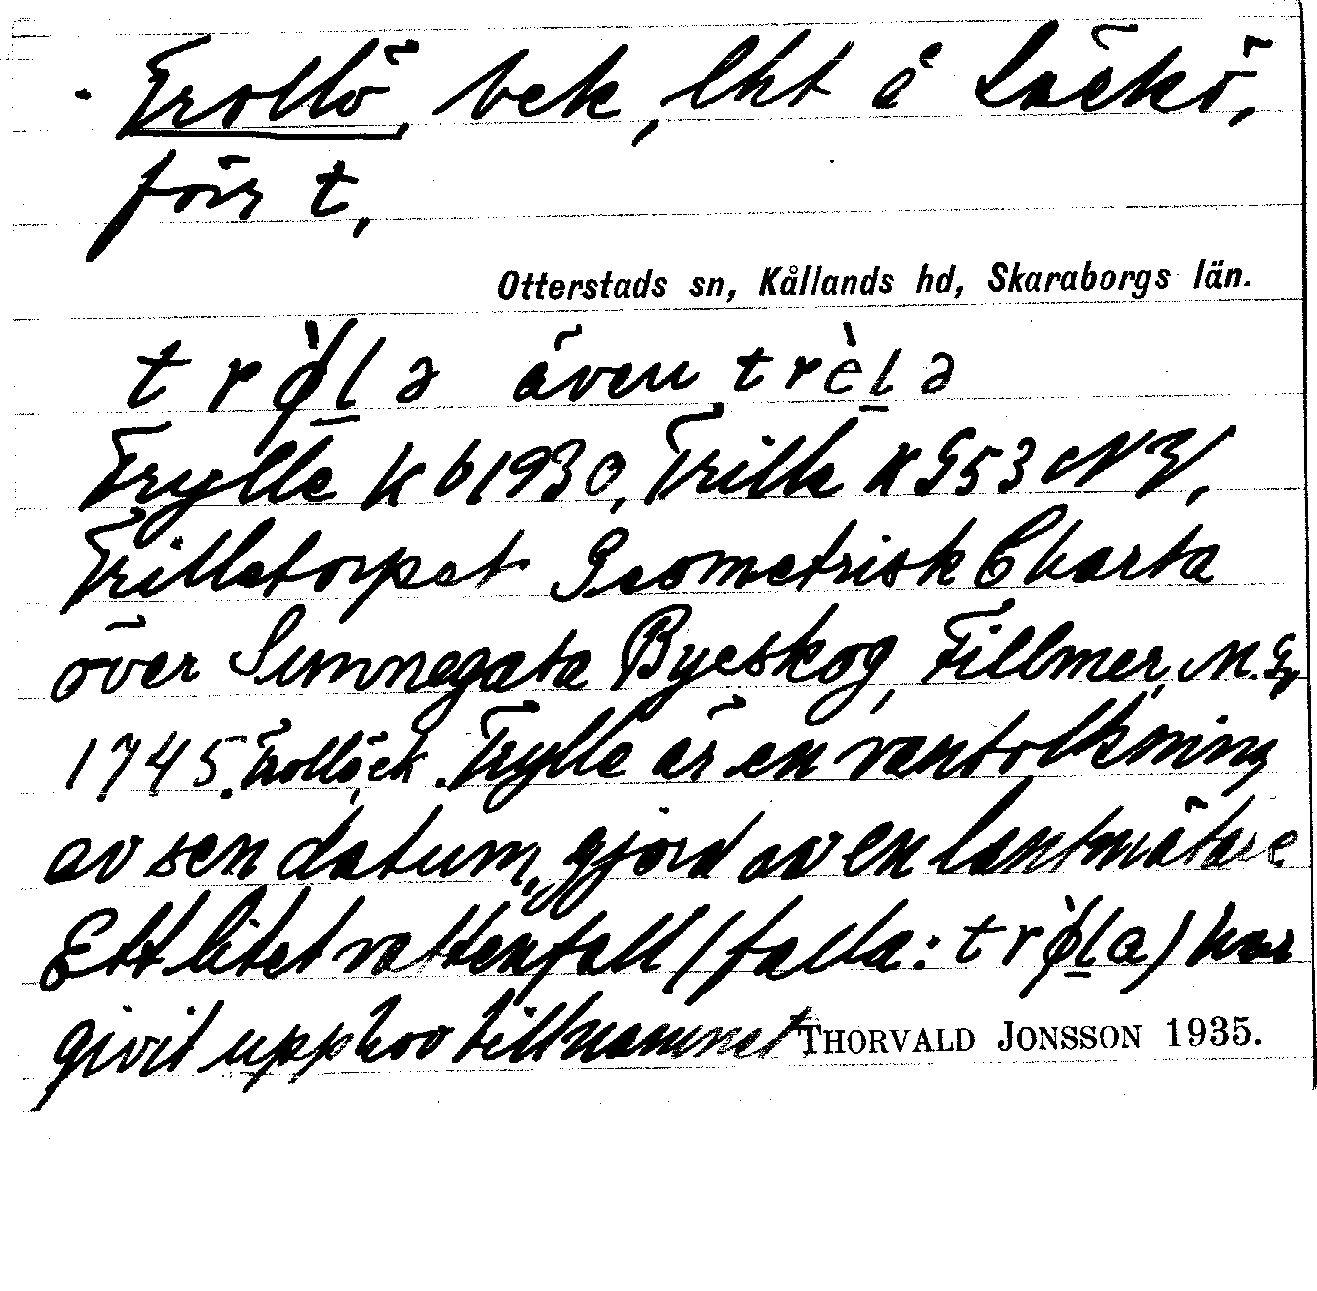 Trollö, bek, lht å Läckö,
förr t,
Otterstads sn, Kållands hd, Skaraborgs län.
t r ø̀ l ə även t r è l ə
Trylle k b 1930, Trille K G53 NV,
Trilletorpet Geometrisk Charta
över Sunnegata Byeskog, Fillmer, M.G,
1745. är en vantolkning
Trylle
av sen datum, gjord av en lantmätare
Ett litet vattenfall (falla: t r ø̀ l a) har
givit upphov till namnet THORVALD JONSSON 1935.